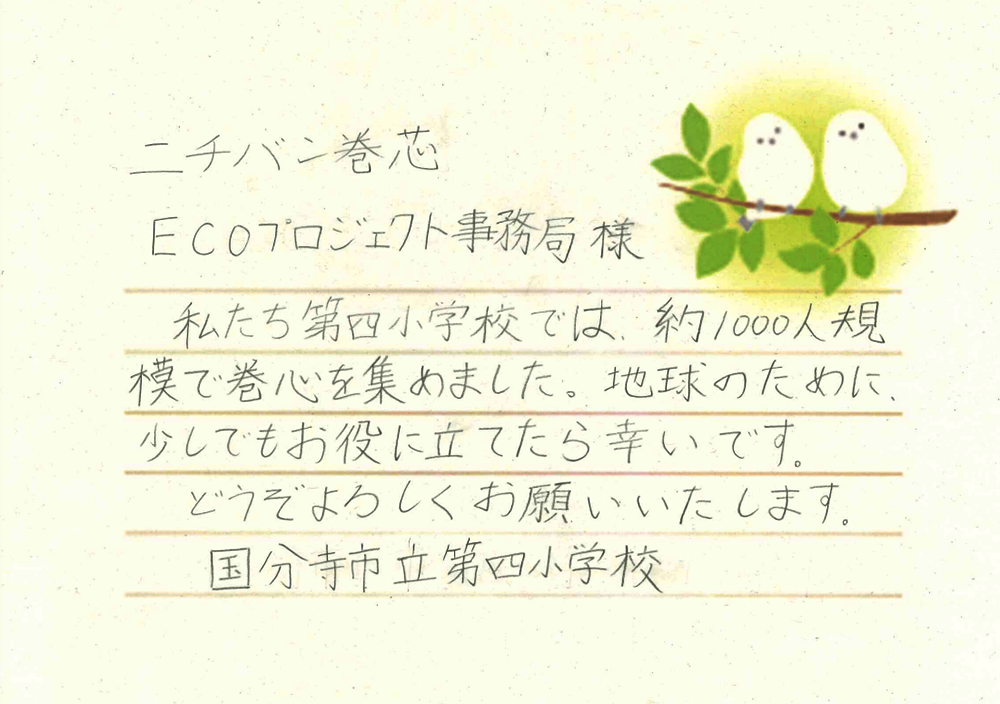 ニチバン巻芯
ECOプロジェクト事務局 様
私たち第四小学校では、約1000人規
模で巻心を集めました。地球のために、
少しでもお役に立てたら幸いです。
どうぞよろしくお願いいたします。
国分寺市立第四小学校